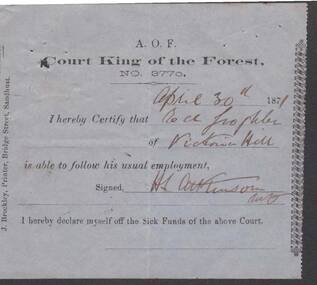 A. O. F.
Court King of the Forest,
NO. 3770.
April 30th 1871
I hereby Certify that
of Victoria Hill
is able to follow his usual employment,
Signed, HL Atkinson
I hereby declare myself off the Sick Funds of the above Court.
J. Brockley, Printer, Bridge Street, Sandhurst.